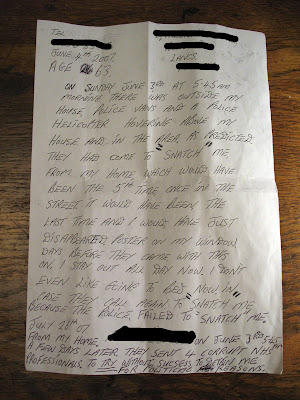 TEL
JUNE 4TH 2007.
LANCS.
AGE 63
ON SUNDAY JUNE 3RD AT 5.45AM
MORNING THERE WAS OUTSIDE MY
HOUSE, POLICE VANS AND A POLICE
HELICOPTER HOVERING ABOVE MY
HOUSE AND IN THE AREA, AS PREDICTED
THEY HAD COME TO "SNATCH" ME,
FROM MY HOME, WHICH WOULD HAVE
BEEN THE 5TH TIME ONCE IN THE
STREET. IT WOULD HAVE BEEN THE
LAST TIME AND I WOULD HAVE JUST
DISAPPEARED, POSTER ON MY WINDOW
DAYS BEFORE THEY CAME WITH THIS
ON, I STAY OUT ALL DAY NOW, I DON'T
EVEN LIKE GOING TO BED, NOW, IN
CASE THEY CALL AGAIN TO "SNATCH" ME
BECAUSE THE POLICE, FAILED TO "SNATCH" ME
JULY 28TH 07.
FROM MY HOME, ON JUNE 3RD 5.45AM
A FEW DAYS LATER THEY SENT 4 CORRUPT NHS
PROFESSIONALS, TO TRY WITHOUT SUCSESS TO DETAIN ME
FOR POLITICAL REASONS.